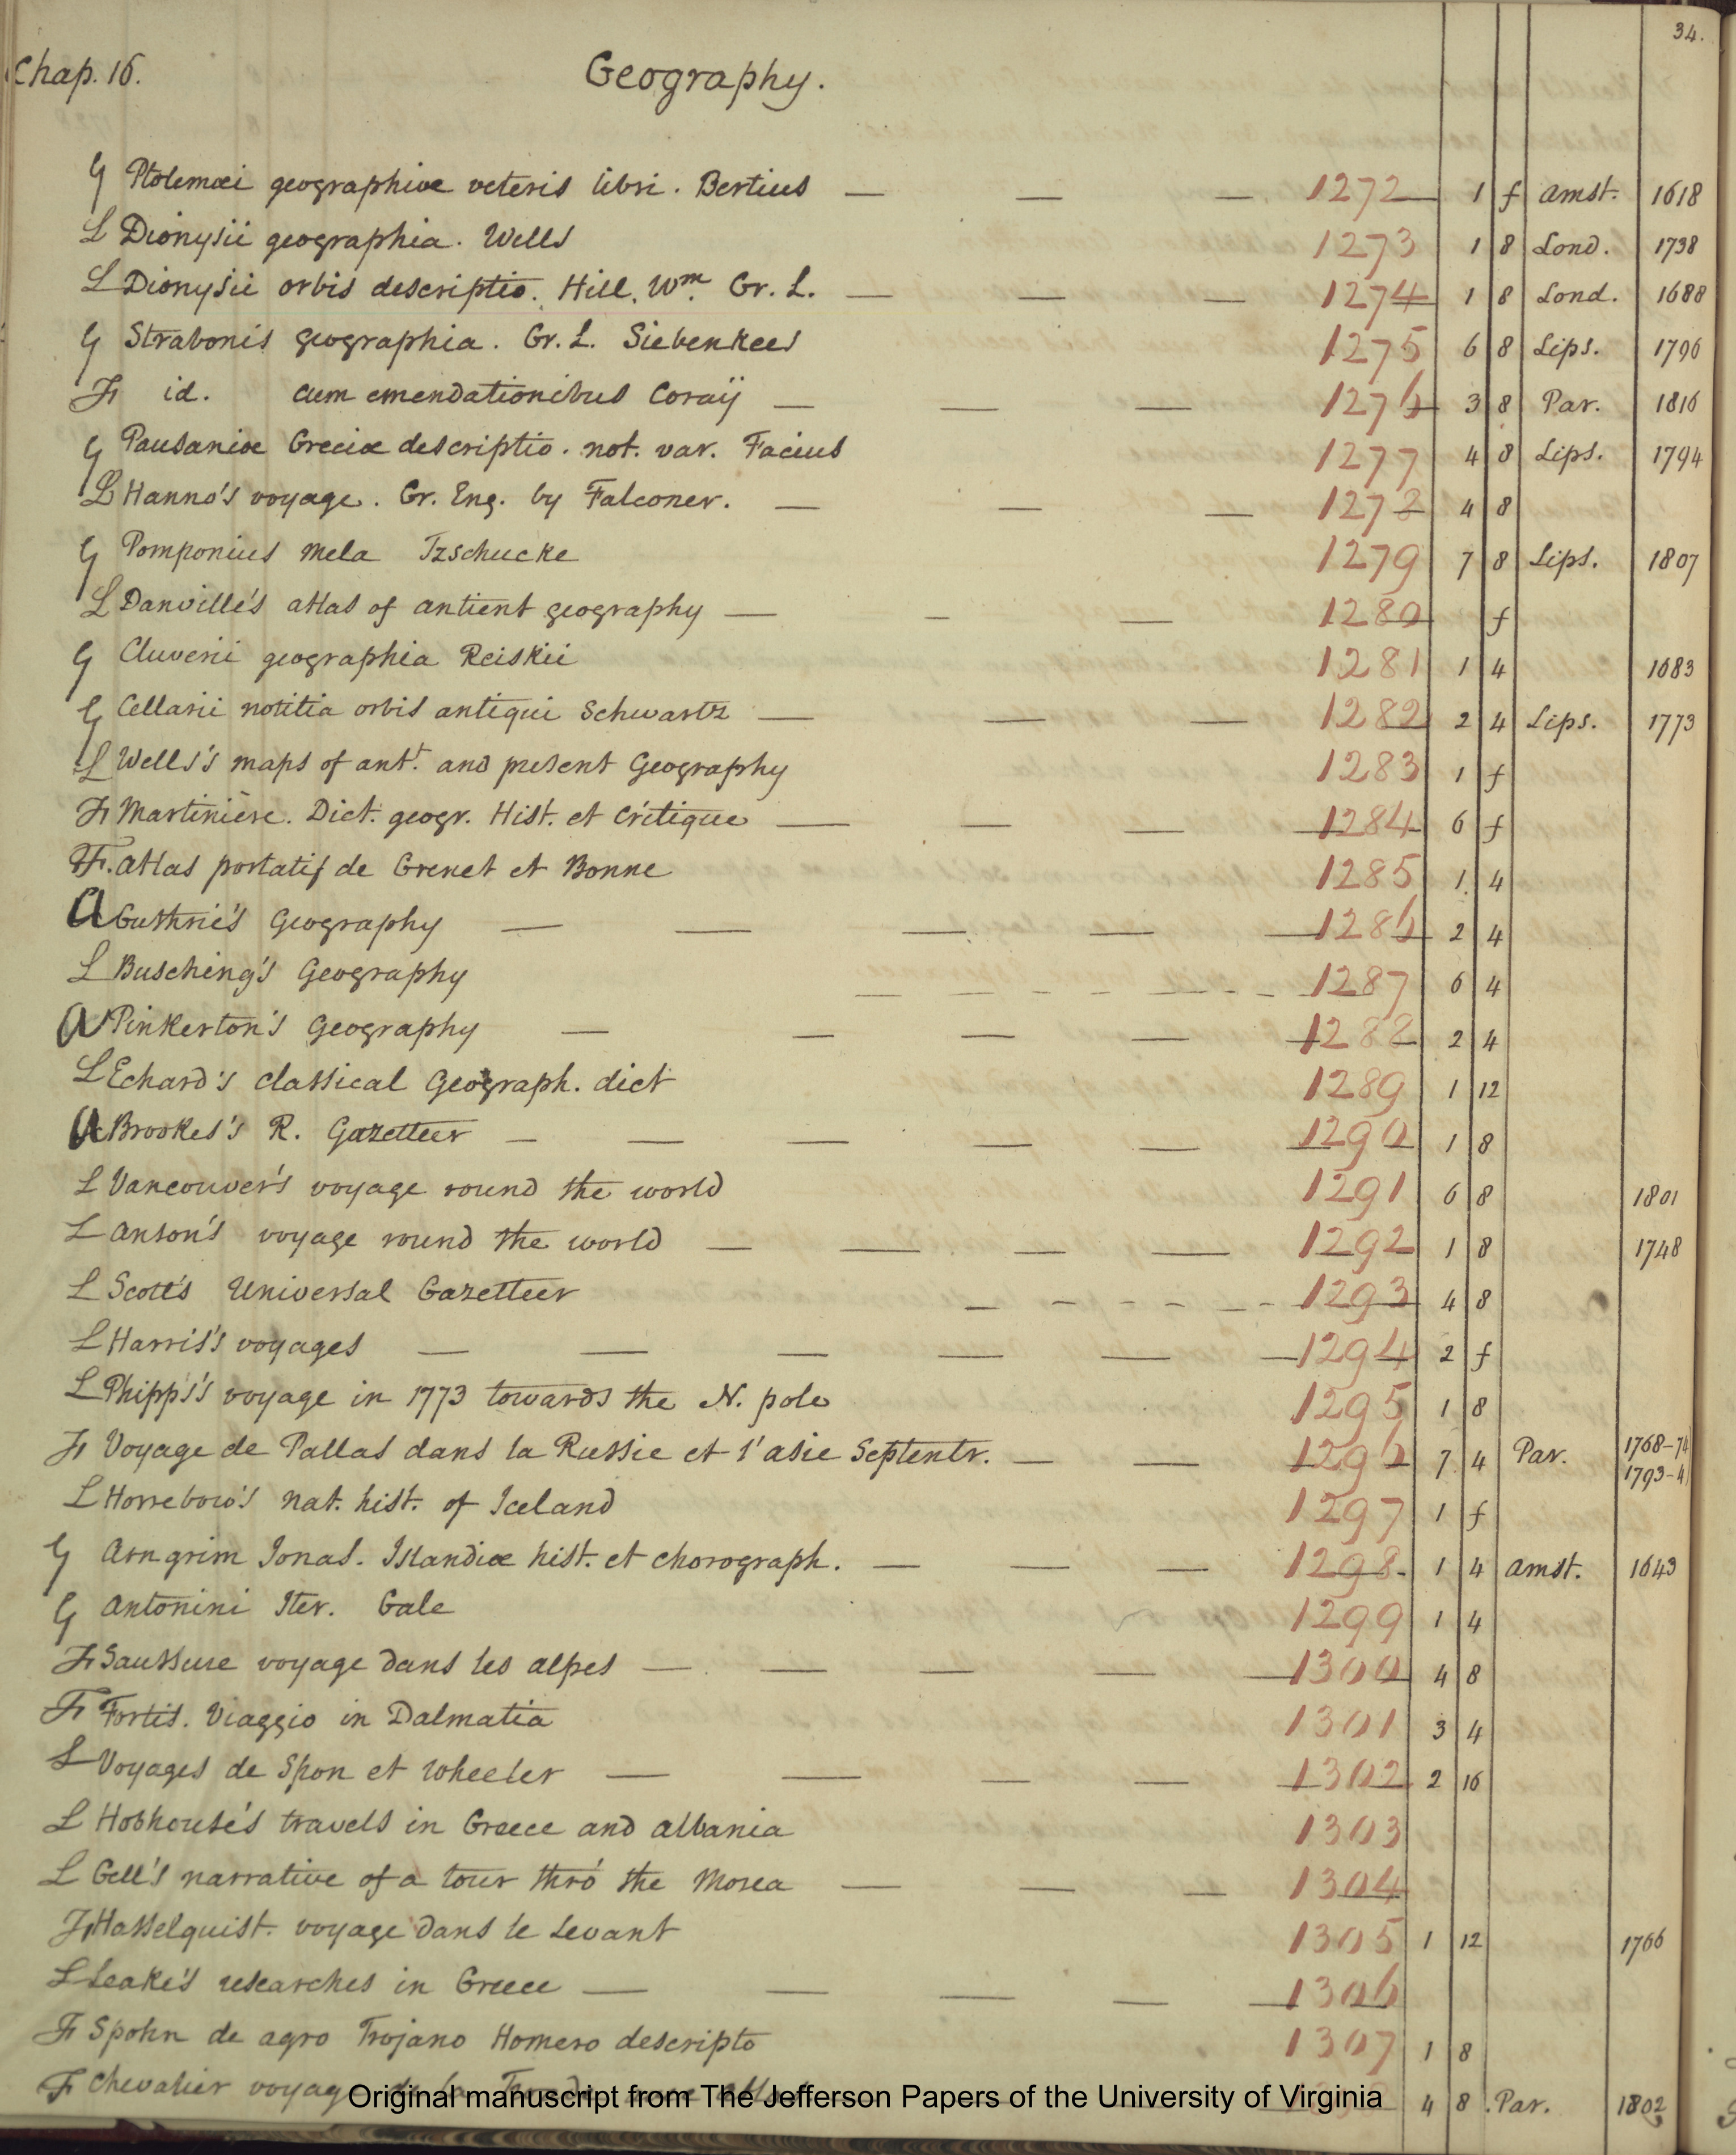 34.
Chap. 16. Geography.
G Ptolemæi geographiæ veteris libri. Bertius — — — 1272 1 f Amst. 1618
L Dionysii geographia. Wells 1273 1 8 Lond. 1738
L Dionysii orbis descriptio. Hill. Wm. Gr. L. — — — 1274 1 8 Lond. 1688
G Strabonis geographia. Gr. L. Siebenkees 1275 6 8 Lips. 1796
F id. cum emendationibus Coraÿ — — — 1276 3 8 Par. 1816
G Pausaniæ Greciæ descriptio. not. var. Facius 1277 4 8 Lips. 1794
L Hanno's voyage. Gr. Eng. by Falconer. — — — 1278 4 8
G Pomponius Mela Tzschucke 1279 7 8 Lips. 1807
L Danville's atlas of antient geography — — — 1280 f
G Cluverii geographia Reiskii 1281 1 4 1683
G Cellarii notitia orbis antiqui Schwartz — — — 1282 2 4 Lips. 1773
L Wells's maps of antt. and present Geography 1283 1 f
F Martinière. Dict. geogr. Hist. et Critique — — — 1284 6 f
F. Atlas portatif de Grenet et Bonne 1285 1. 4
A Guthrie's Geography — — — — — 1286 2 4
L Busching's Geography — — — 1287 6 4
A Pinkerton's Geography — — — — 1288 2 4
L Echard's classical Geograph. dict 1289 1 12
A Brookes's R. Gazetteer — — — — — 1290 1 8
L Vancouver's voyage round the world 1291 6 8 1801
L Anson's voyage round the world — — — — 1292 1 8 1748
L Scott's Universal Gazetteer — — — 1293 4 8
L Harris's voyages — — — — — — 1294 2 f
L Phipps's voyage in 1773 towards the N. pole 1295 1 8
F Voyage de Pallas dans la Russie et l'asie Septentr. — — 1296 7 4 Par. 1768-74 1793-4
L Horrebow's nat. hist. of Iceland 1297 1 f
G Arngrim Jonas. Islandiæ hist. et chorograph. — — — 1298 1 4 Amst. 1643
G Antonini Iter. Gale 1299 1 4
F Saussure voyage dans les alpes — — — — 1300 4 8
F Fortis. Viaggio in Dalmatia 1301 3 4
L Voyages de Spon et Wheeler — — — — 1302 2 16
L Hobhouse's travels in Greece and Albania 1303
L Gell's narrative of a tour thro' the Morea — — — 1304
F Hasselquist. voyage dans le Levant 1305 1 12 1766
L Leake's researches in Greece — — — — 1306
F Spohn de agro Trojano Homero descripto 1307 1 8
F Chevalier voyage de la 4 8 . Par. 1802
Original manuscript from The Jefferson Papers of the University of Virginia